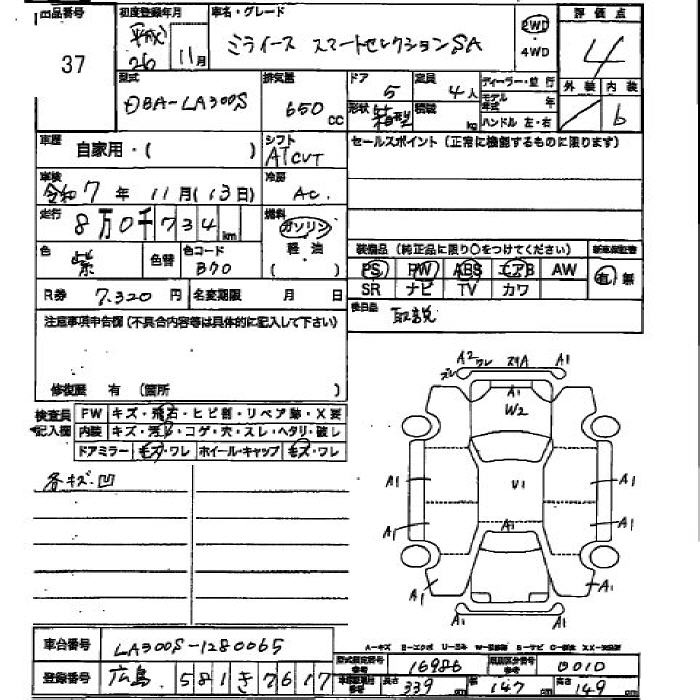 出品番号 37
初度登録年月 平成26 11月
車名・グレード ミライース スマートセレクションSA
2WD ・ 4WD
評価点 4
型式 DBA-LA300S
排気量 650 CC
ドア 5 定員 4人
形状 箱型 積載 kg
ディーラー・並行
モデル年式 年
ハンドル 左・右
外装 内装 b
車歴 自家用・( )
シフト ATCVT
セールスポイント (正常に機能するものに限ります)
車検 令和7年 11月(13日)
冷房 AC.
走行 8万0千734km
燃料 ガソリン 軽油 ( )
色 紫 色替 色コード
装備品 (純正品に限り○をつけてください) 新車保証書
PS PW ABS エアB AW 有・無
SR ナビ TV カワ
R券 7,320円 名変期限 月 日
後日品 取説
注意事項申告欄(不具合内容等は具体的に記入して下さい)
修復歴 有 (箇所 )
検査員記入欄
FW キズ・飛石・ヒビ割・リペア跡・X要
内装 キズ・汚れ・コゲ・穴・スレ・ヘタリ・破レ
ドアミラー キズ・ワレ ホイール・キャップ キズ・ワレ
各キズ.凹
A2 ワレ A1
ズレ
A1
W2
A1 A1
U1
A1 A1 A1
A1 A1
A1 A1
車台番号 LA300S-1280065
登録番号 広島 581 き 7617
型式指定番号 16986 類別区分番号 0010
長さ 339 cm 幅 147 cm 高さ 149